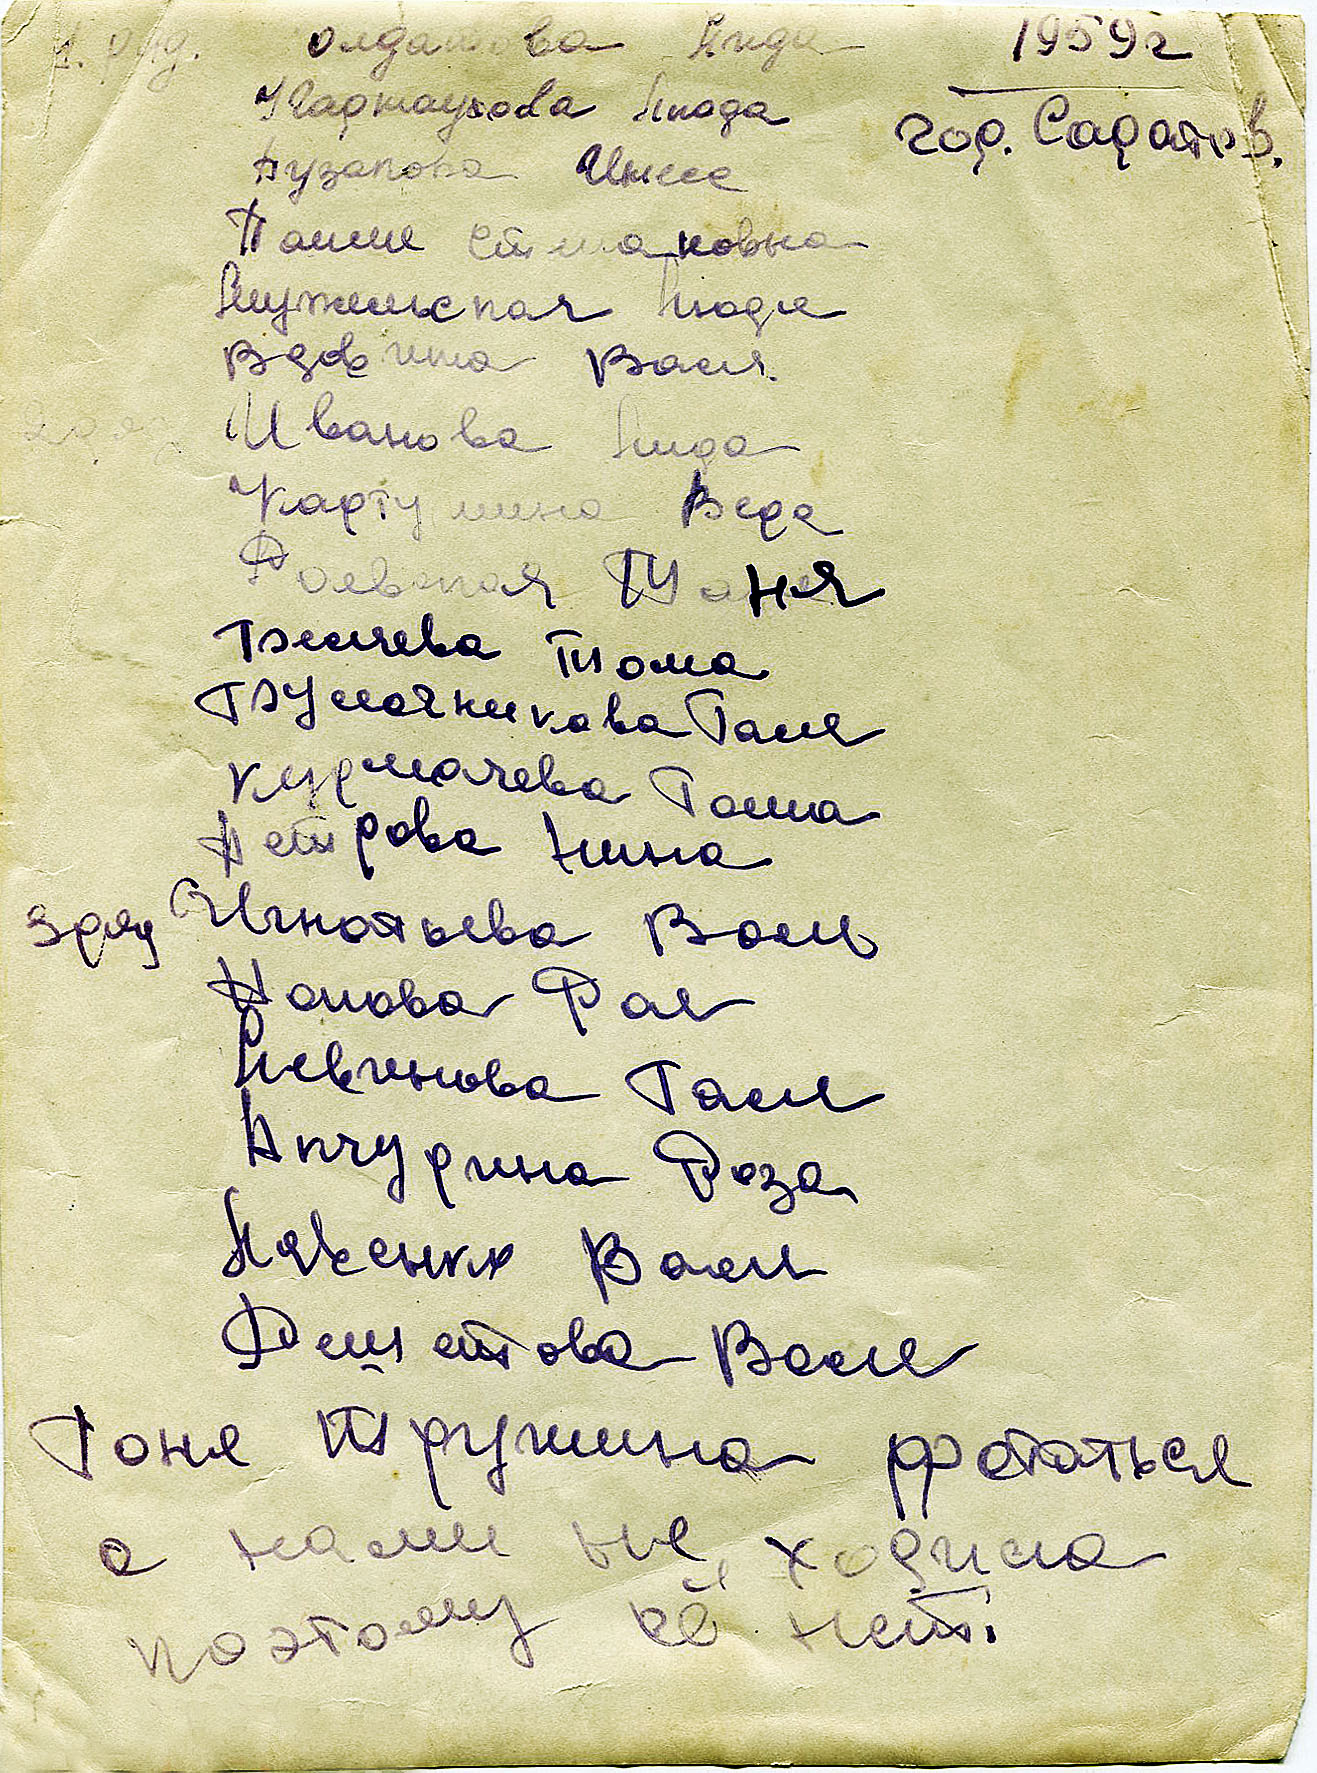 1. ряд. олдатова Лида 1959 г
Картаухова Люда год. Саратов.
Пузапова
Галине Степановна
Мужельская Люда
Вдовина Валя.
Иванова Лида
Картушина Вера
Раевская Таня
Беляева Тома
Бумажникова Галя
Курмачева Тома
Петрова Нина
3 ряд Игнатьева Валя
Попова Рая
Левинова Галя
Апчурина Роза
Лявенки Валя
Решетова Валя
Тоня Трушина фотаться
с нами не ходила
поэтому её нет.